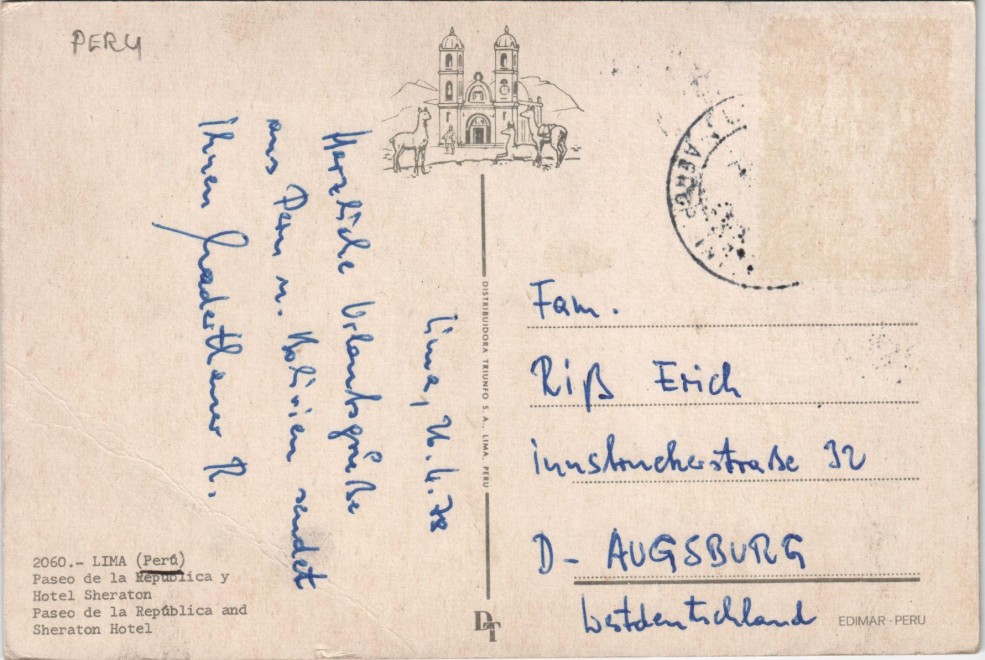 PERU
Lima, 26.4.78
Herzliche Urlaubsgrüße
aus Peru u. Bolivien sendet
Ihnen R.
2060.- LIMA (Perú)
Paseo de la República y
Hotel Sheraton
Paseo de la República and
Sheraton Hotel
DISTRIBUIDORA TRIUNFO S.A., LIMA, PERU
DT
Fam.
Riß Erich
Innsbruckerstraße 32
D- AUGSBURG
Westdeutschland
EDIMAR-PERU